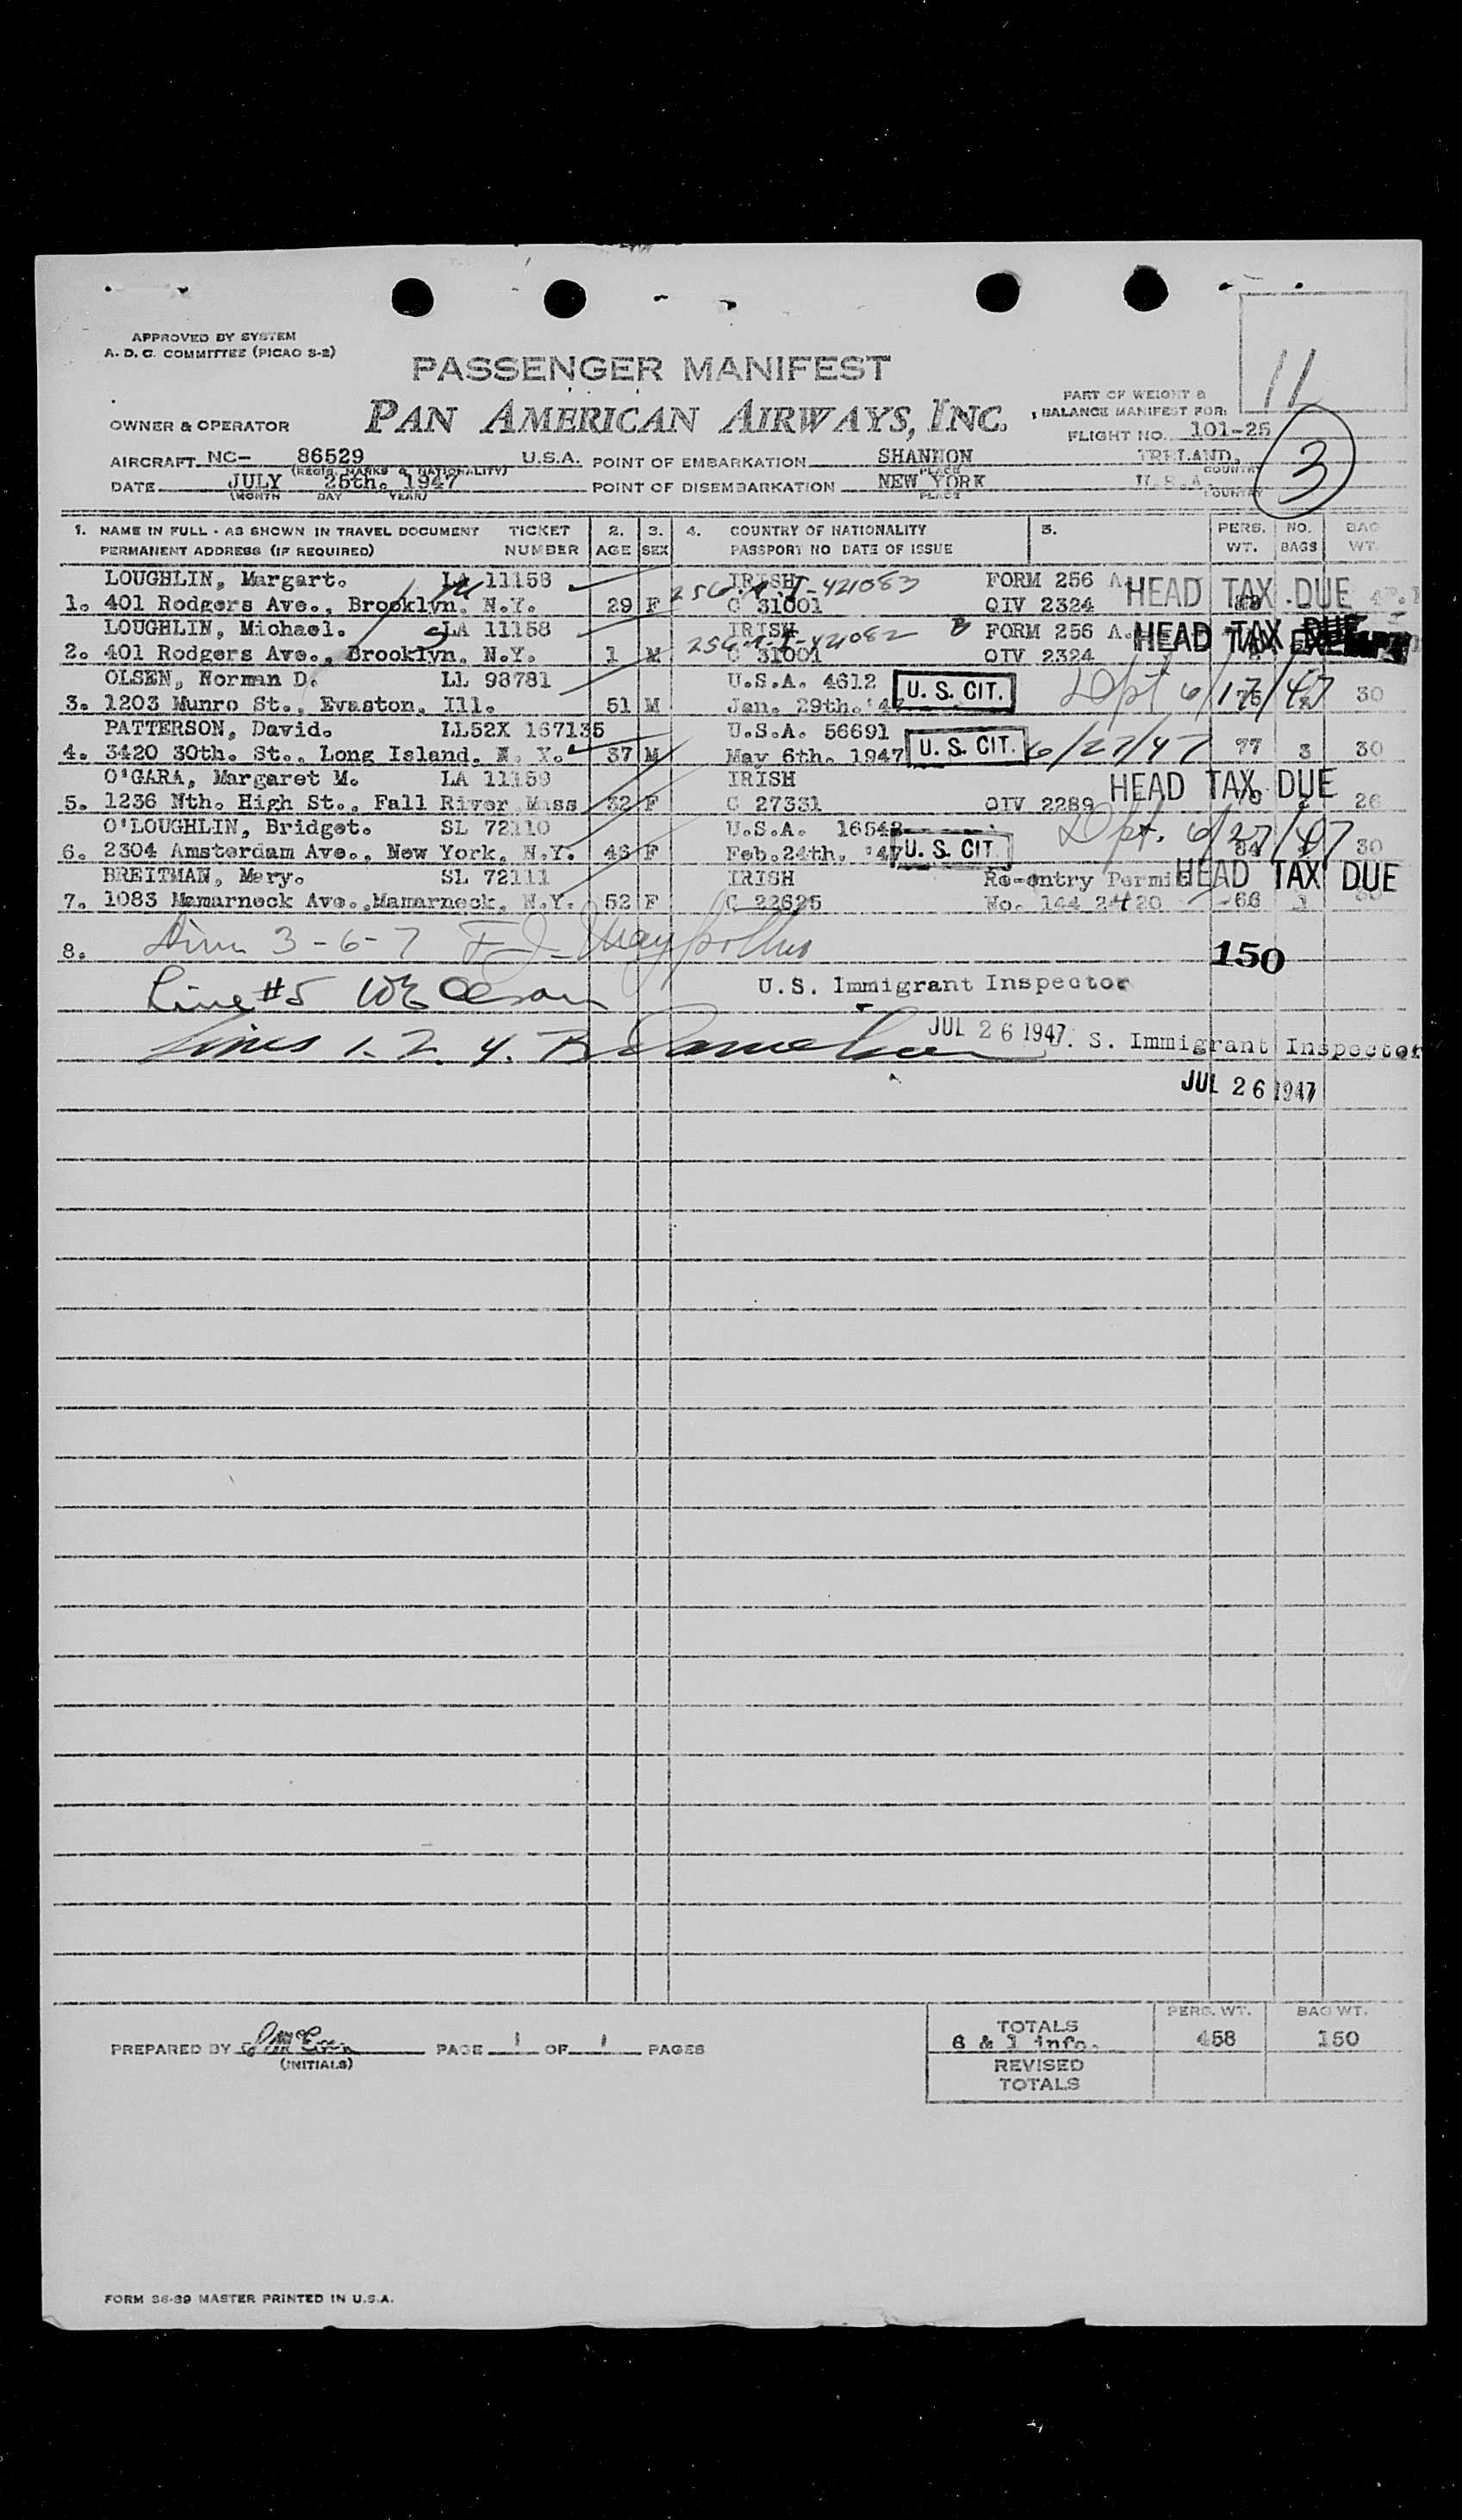 APPROVED BY SYSTEM
A. D. C. COMMITTEE (PICAO S-2)
PASSENGER MANIFEST
11
PAN AMERICAN AIRWAYS, INC.
PART OF WEIGHT &
BALANCE MANIFEST FOR:
OWNER & OPERATOR
FLIGHT NO. 101-25
AIRCRAFT NC- 86529 U.S.A. POINT OF EMBARKATION SHANNON IRELAND.
(REGIS. MARKS & NATIONALITY) PLACE COUNTRY
3
DATE JULY 25th. 1947 POINT OF DISEMBARKATION NEW YORK U.S.A.
(MONTH DAY YEAR) PLACE COUNTRY
1. NAME IN FULL - AS SHOWN IN TRAVEL DOCUMENT TICKET 2. 3. 4. COUNTRY OF NATIONALITY 5. PERS. NO. BAG
PERMANENT ADDRESS (IF REQUIRED) NUMBER AGE SEX PASSPORT NO DATE OF ISSUE WT. BAGS WT.
LOUGHLIN, Margart. LA 11158 IRISH 256 A I-421083 FORM 256 A HEAD TAX DUE
1. 401 Rodgers Ave., Brooklyn. N.Y. 29 F C 31001 QIV 2324
LOUGHLIN, Michael. LA 11158 IRISH 256-A-I-421082 B FORM 256 A. HEAD TAX DUE
2. 401 Rodgers Ave., Brooklyn. N.Y. 1 M C 31001 QIV 2324
OLSEN, Norman D. LL 98781 U.S.A. 4612 U. S. CIT. Dpt 6/17/47
3. 1203 Munro St., Evaston. Ill. 51 M Jan. 29th. '47 30
PATTERSON, David. LL52X 167135 U.S.A. 56691 U. S. CIT. 6/27/47
4. 3420 30th. St., Long Island. N. Y. 37 M May 6th. 1947 77 3 30
O'GARA, Margaret M. LA 11159 IRISH HEAD TAX DUE
5. 1236 Nth. High St., Fall River Mass 32 F C 27331 QIV 2289 26
O'LOUGHLIN, Bridget. SL 72110 U.S.A. 16542 U. S. CIT. Dpt. 6/27/47
6. 2304 Amsterdam Ave., New York. N.Y. 46 F Feb.24th. '47 30
BREITMAN, Mary. SL 72111 IRISH Re-entry Permit HEAD TAX DUE
7. 1083 Mamarneck Ave.,Mamarneck. N.Y. 52 F C 22625 No. 144 2420 66 1
8. 3-6-7 150
Line #5 U.S. Immigrant Inspector
Lines 1. 2. 4. JUL 26 1947 U. S. Immigrant Inspector
JUL 26 1947
TOTALS PERS. WT. BAG WT.
6 & 1 info. 458 150
PREPARED BY PAGE 1 OF 1 PAGES
(INITIALS) REVISED
TOTALS
FORM 36-39 MASTER PRINTED IN U.S.A.